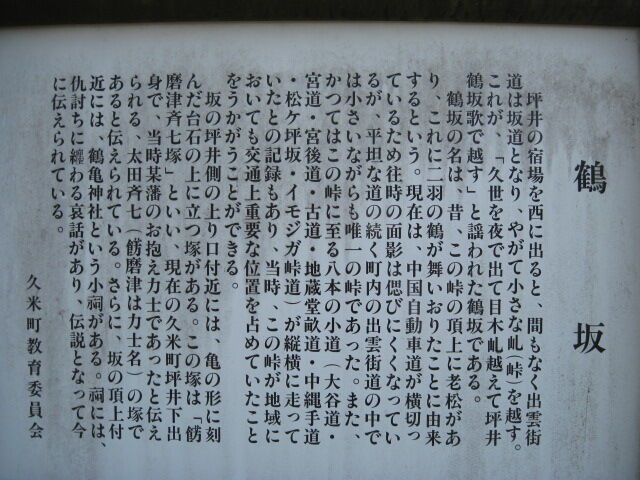 鶴坂
坪井の宿場を西に出ると、間もなく出雲街
道は坂道となり、やがて小さな乢(峠)を越す。
これが、「久世を夜で出て目木乢越えて坪井
鶴坂歌で越す」と謡われた鶴坂である。
鶴坂の名は、昔、この峠の頂上に老松があ
り、これに二羽の鶴が舞いおりたことに由来
するという。現在は、中国自動車道が横切っ
ているため往時の面影は偲びにくくなってい
るが、平坦な道の続く町内の出雲街道の中で
は小さいながらも唯一の峠であった。また、
かつてはこの峠に至る八本の小道(大谷道・
宮道・宮後道・古道・地蔵堂畝道・中縄手道
・松ケ坪坂・イモジガ峠道)が縦横に走って
いたとの記録もあり、当時、この峠が地域に
おいても交通上重要な位置を占めていたこと
をうかがうことができる。
坂の坪井側の上り口付近には、亀の形に刻
んだ台石の上に立つ塚がある。この塚は「餝
磨津斉七塚」といい、現在の久米町坪井下出
身で、当時某藩のお抱え力士であったと伝え
られる、太田斉七(餝磨津は力士名)の塚で
あると伝えられている。さらに、坂の頂上付
近には、鶴亀神社という小祠がある。祠には、
仇討ちに纏わる哀話があり、伝説となって今
に伝えられている。
久米町教育委員会